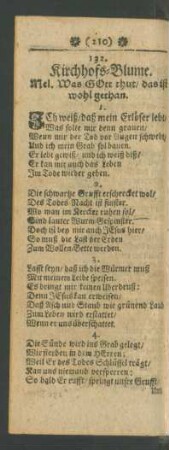 (210)
132.
Kirchhofs-Blume.
Mel. Was GOtt thut/ das ist
wohl gethan.
1.
Ich weiß/ daß mein Erlöser lebt/
Was solte mir denn grauen/
Wenn mir der Tod vor Augen schwebt/
Und ich mein Grab sol bauen.
Er lebt gewiß/ und ich weiß diß/
Er kan mir auch das Leben
Im Tode wieder geben.
2.
Die schwartze Grufft erschrecket wol/
Des Todes Nacht ist finster.
Wo man im Kercker ruhen sol/
Sind lauter Wurm-Gespinster.
Doch ist bey mir auch JEsus hier/
So muß die Last der Erden
Zum Wollen-Bette werden.
3.
Laßt seyn/ daß ich die Würmer muß
Mit meinem Leibe speisen.
Es bringt mir keinen Uberdruß:
Denn JEsus kan erweisen/
Daß Asch und Staub wie grünend Laub
Zum Leben wird erstattet/
Wenn er uns überschattet.
4.
Die Sünde wird ins Grab gelegt/
Wir sterben in dem HErren;
Weil Er des Todes Schlüssel trägt/
Kan uns niemand versperren:
So bald Er rufft/ springt unsre Grufft/